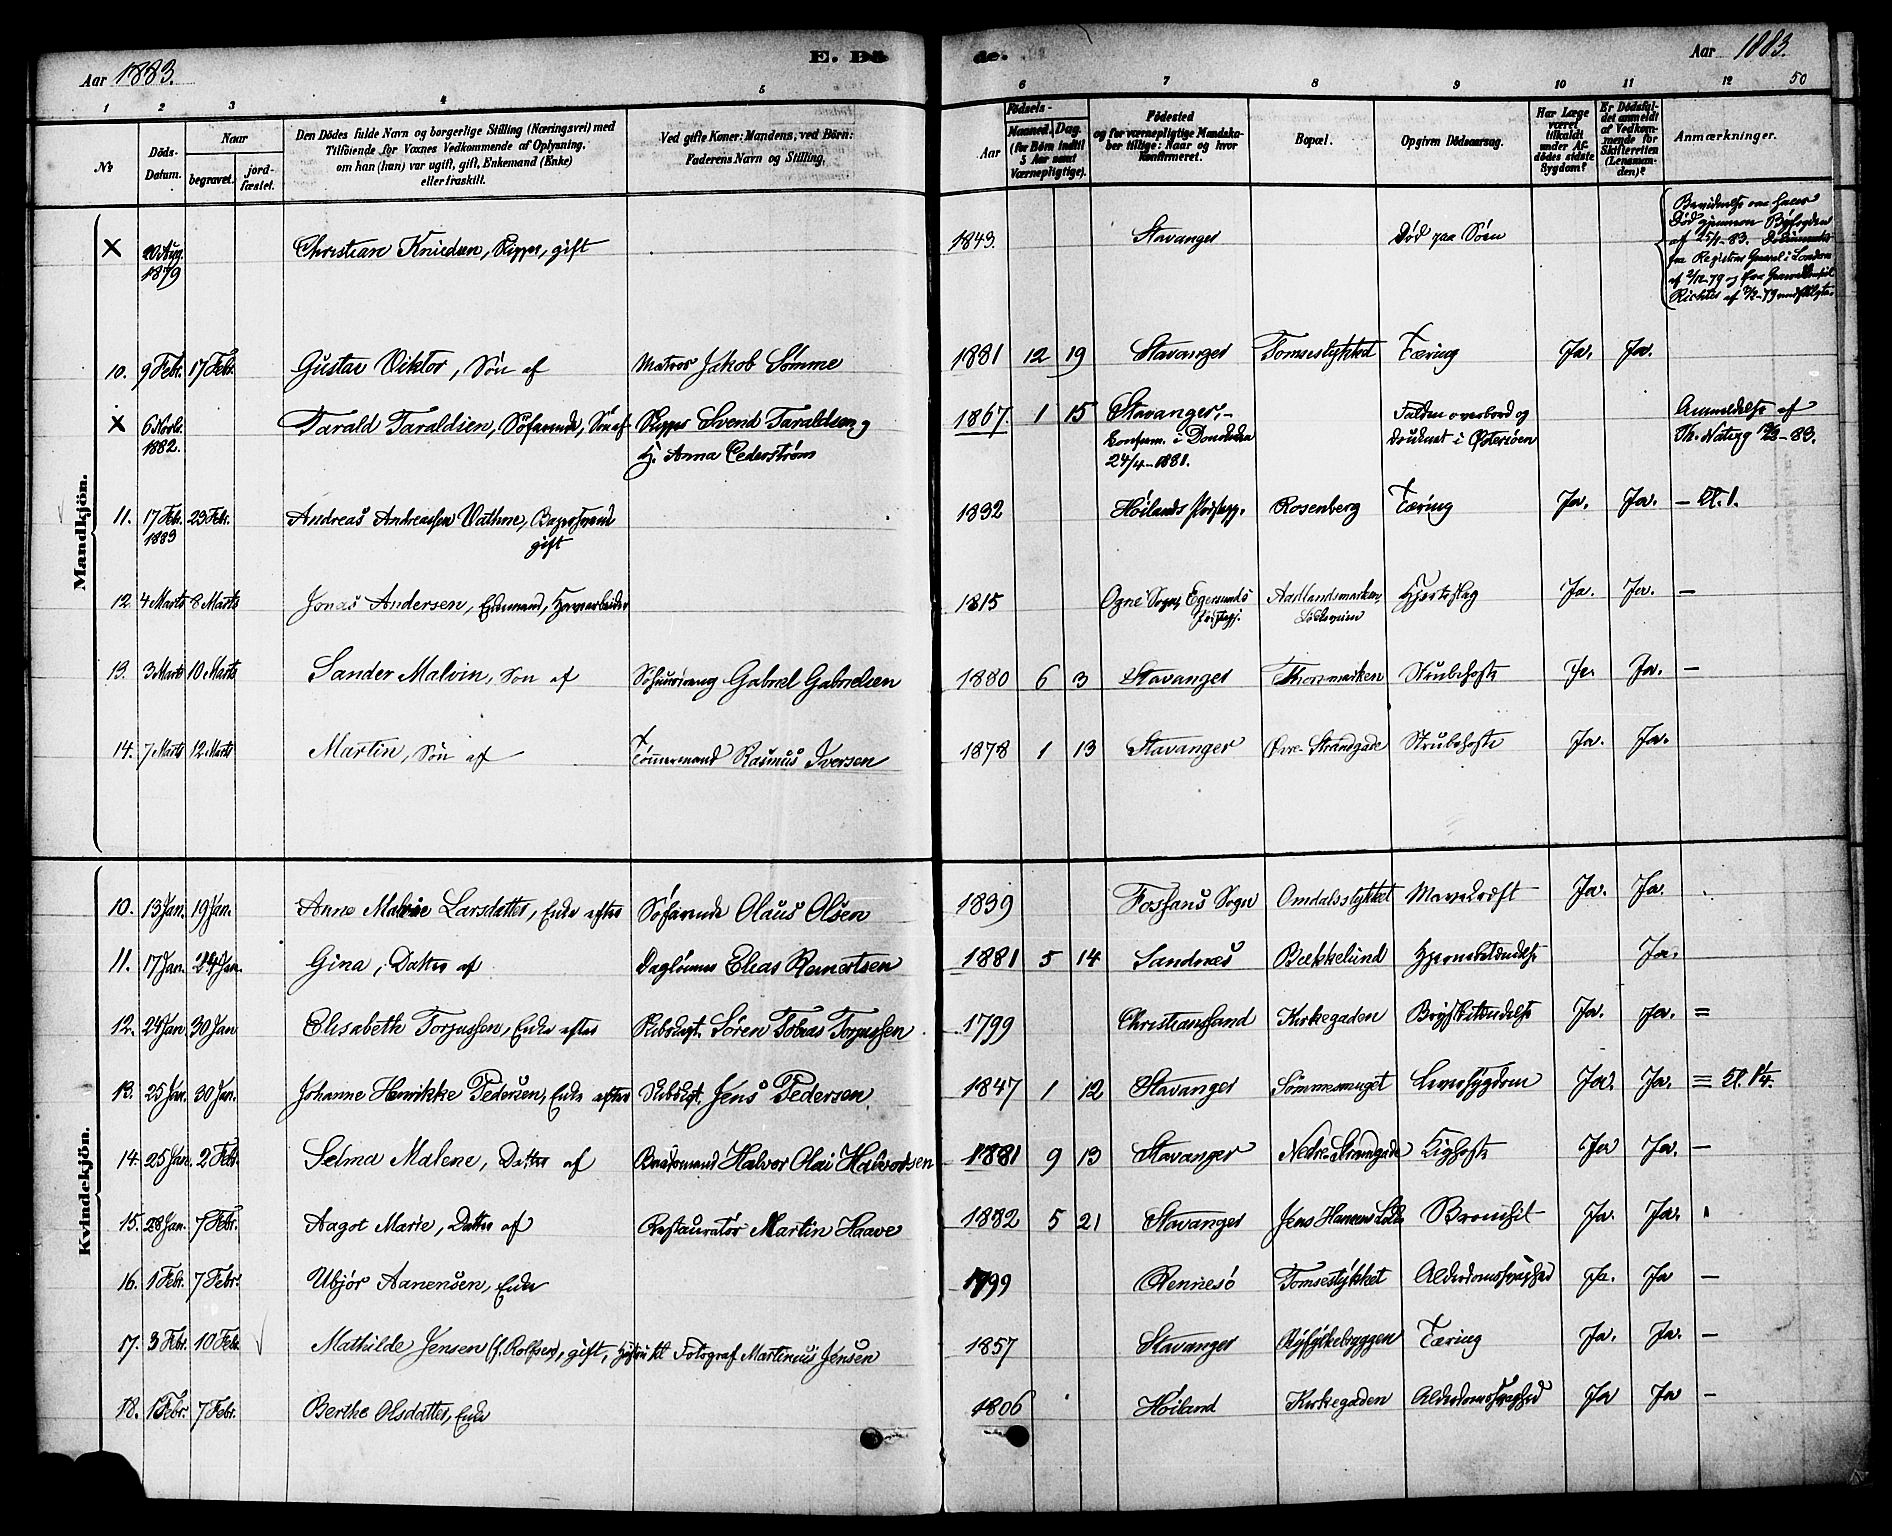 Aar 1883.
E. Dö
de.
Aar 1883.
50
1 2 3 4 5 6 7 8 9 10 11 12
No
Döds-
Datum.
Naar
begravet.
jord-
fæstet.
Den Dödes fulde Navn og borgerlige Stilling (Næringsvei) med
Tilföiende for Voxnes Vedkommende af Oplysning,
om han (hun) var ugift, gift, Enkemand (Enke)
eller fraskilt.
Ved gifte Koner: Mandens, ved Börn:
Faderens Navn og Stilling.
Födsels-
Aar
Maaned.
Dag.
(for Börn indtil
5 Aar samt
Værnepligtige).
Födested
og for værnepligtige Mandska-
ber tillige: Naar og hvor
konfirmeret.
Bopæl.
Opgiven Dödsaarsag.
Har Læge
været
tilkaldt
under Af-
dödes sidste
Sygdom?
Er Dödsfal-
det anmeldt
af Vedkom-
mende for
Skifteretten
(Lensman-
den)?
Anmærkninger.
Mandkjön.
× 20 Aug. 1879 Christian Knudsen, Skipper, gift 1843. Stavanger Död paa Söen
Død gjennem Byfogden
af 25/1-83.
fra Registrar General i London
af 2/12-79 og fra Generalkonsul
Richter af
10. 9 Febr. 17 Febr. Gustav Viktor, Sön af Matros Jakob Sömme 1881 12 19 Stavanger Tomsestykket Tæring Ja. Ja.
× 6 1882. Tarald Taraldsen, Söfarende, Sön af Skipper Svend Taraldsen og
H. Anna Cederström 1867. 1 15 Stavanger,-
konfirm. i
24/4-1881. Falden overbord og
druknet i Östersöen Anmeldelse af
11. 17 Febr. 1883 23 Febr. Andreas Andreassen Vathne,
gift 1832 Höilands Præstegj. Rosenberg Tæring Ja. Ja. —
12. 4 Marts 8 Marts Jonas Andersen, Enkemand, Havnearbeider 1815 Ogne Sogn, Egersunds
Præstegj. Aadlandsmarken, Hjerteslag Ja. Ja. —
13. 3 Marts 10 Marts Sander Malvin, Sön af Gabriel Gabrielsen 1880 6 3 Stavanger Strubehoste Ja. Ja. —
14. 7 Marts 12 Marts Martin, Sön af Tömmermand Rasmus Iversen 1878 1 13 Stavanger Övre Strandgade Strubehoste Ja. Ja.
Kvindekjön.
10. 13 Jan. 19 Jan. Anne Malene Larsdatter, Enke efter Söfarende Olaus Olsen 1839 Fossans Sogn Omdalsstykket Mavekræft Ja. Ja.
11. 17 Jan. 24 Jan. Gina, Datter af Daglönner Elias Reinertsen 1881 5 14 Sandnæs Bækkelund Hjernebetændelse Ja.
12. 24 Jan 30 Jan Elisabeth Torjussen, Enke efter Skibskapt. Sören Tobias Torjussen 1799 Christianssand Kirkegaden Brystbetændelse Ja. Ja. =
13. 25 Jan. 30 Jan. Johanne Henrikke Pedersen, Enke efter Skibskpt. Jens Pedersen 1847 1 12 Stavanger Sömmesmuget Ja. Ja. =
14. 25 Jan. 2 Febr. Selma Malene, Datter af Halvor Olai Halvorsen 1881 9 13 Stavanger Nedre Strandgade Kighoste Ja Ja. —
15. 28 Jan. 7 Febr. Aagot Marie, Datter af Restauratör Martin Haave 1882 5 21 Stavanger Jens Hansens Bronkit Ja. Ja.
16. 1 Febr. 7 Febr. Ubjör Aanensen, Enke 1799 Rennesö Tomsestykket Alderdomssvaghed Ja. Ja —
17. 3 Febr. 10 Febr. Mathilde Jensen (f. Rolfsen), gift, Hustru til Fotograf Martinius Jensen 1857 Stavanger Ryfylkebryggen Tæring Ja. Ja. —
18. 1 Febr. 7 Febr. Berthe Olsdatter, Enke 1806 Höiland Kirkegaden Alderdomssvaghed Ja Ja —